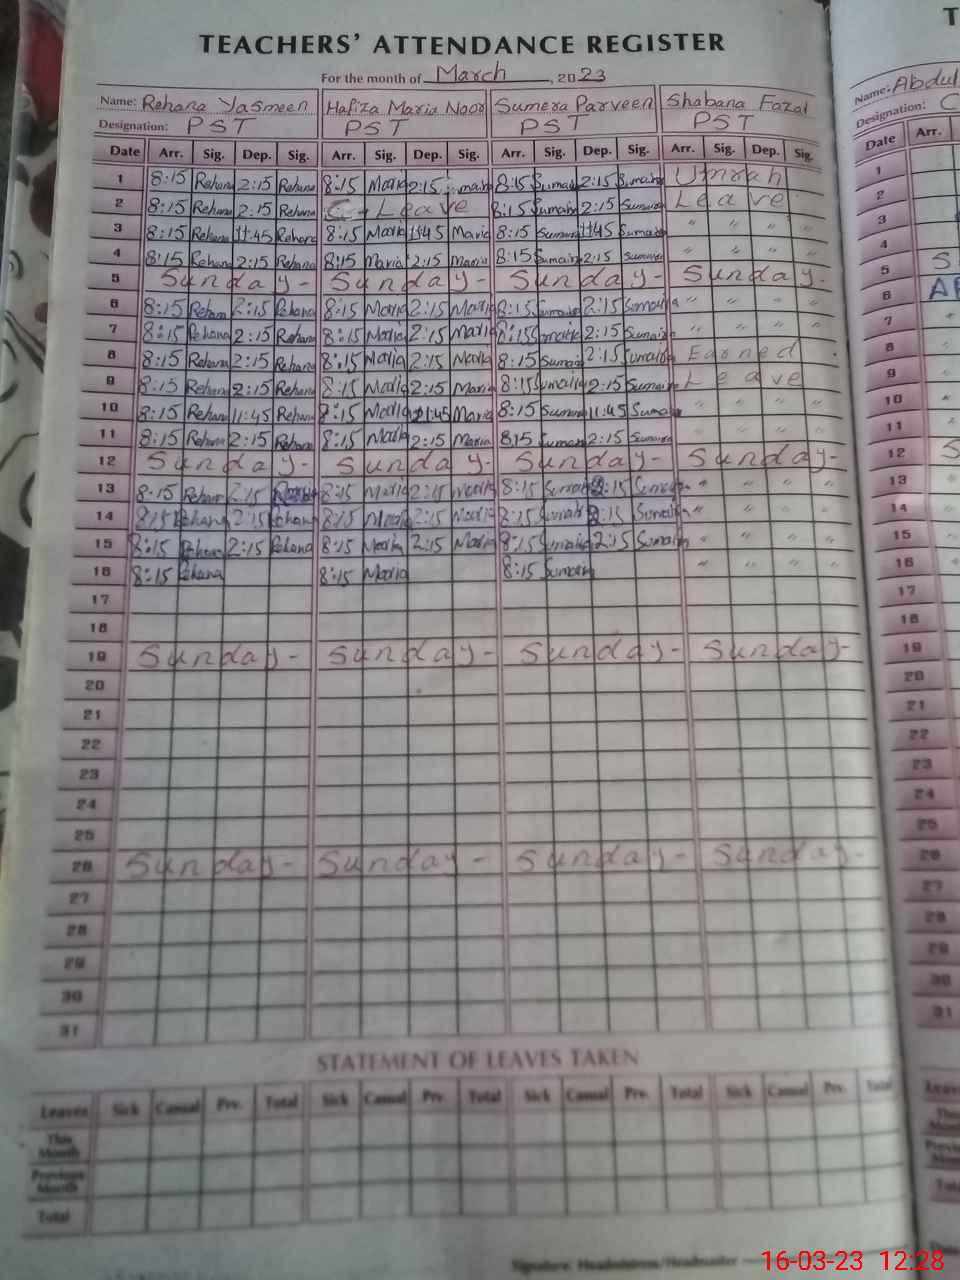 TEACHERS' ATTENDANCE REGISTER
For the month of March, 2023
Name: Rehana Yasmeen Hafiza Maria Noor Sumera Parveen Shabana Fazal
Designation: PST PST PST PST
Date Arr. Sig. Dep. Sig. Arr. Sig. Dep. Sig. Arr. Sig. Dep. Sig. Arr. Sig. Dep. Sig.
1 8:15 Rehana 2:15 Rehana 8:15 Maria 2:15 8:15 Sumaira 2:15 Sumaira Umrah
2 8:15 Rehana 2:15 Rehana C-Leave 8:15 Sumaira 2:15 Sumaira Leave
3 8:15 Rehana 11:45 Rehana 8:15 Maria 11:45 Maria 8:15 Sumaira 11:45 Sumaira " " " "
4 8:15 Rehana 2:15 Rehana 8:15 Maria 2:15 Maria 8:15 Sumaira 2:15 Sumaira " " " "
5 Sunday- Sunday- Sunday- Sunday-
6 8:15 Rehana 2:15 Rehana 8:15 Maria 2:15 Maria 8:15 Sumaira 2:15 Sumaira " " " "
7 8:15 Rehana 2:15 Rehana 8:15 Maria 2:15 Maria 8:15 Sumaira 2:15 Sumaira " " " "
8 8:15 Rehana 2:15 Rehana 8:15 Maria 2:15 Maria 8:15 Sumaira 2:15 Sumaira Earned
9 8:15 Rehana 2:15 Rehana 8:15 Maria 2:15 Maria 8:15 Sumaira 2:15 Sumaira Leave
10 8:15 Rehana 11:45 Rehana 8:15 Maria 11:45 Maria 8:15 Sumaira 11:45 Sumaira " " " "
11 8:15 Rehana 2:15 Rehana 8:15 Maria 2:15 Maria 8:15 Sumaira 2:15 Sumaira " " " "
12 Sunday- Sunday- Sunday- Sunday-
13 8:15 Rehana 2:15 8:15 Maria 2:15 Maria 8:15 Sumaira 2:15 Sumaira " " " "
14 8:15 Rehana 2:15 Rehana 8:15 Maria 2:15 Maria 8:15 Sumaira 2:15 Sumaira " " " "
15 8:15 Rehana 2:15 Rehana 8:15 Maria 2:15 Maria 8:15 Sumaira 2:15 Sumaira " " " "
16 8:15 Rehana 8:15 Maria 8:15 Sumaira " " " "
17
18
19 Sunday- Sunday- Sunday- Sunday-
20
21
22
23
24
25
26 Sunday- Sunday- Sunday- Sunday-
27
28
29
30
31
STATEMENT OF LEAVES TAKEN
Leaves Sick Casual Prv. Total Sick Casual Prv. Total Sick Casual Prv. Total Sick Casual Prv. Total
This Month
Previous Month
Total
Signature: Headmistress/Headmaster
Name: Abdul
Designation: C
Date Arr.
1
2
3
4
5 S
6
7
8
9
10
11
12 S
13
14
15
16
17
18
19
20
21
22
23
24
25
26
27
28
29
30
31
16-03-23 12:28